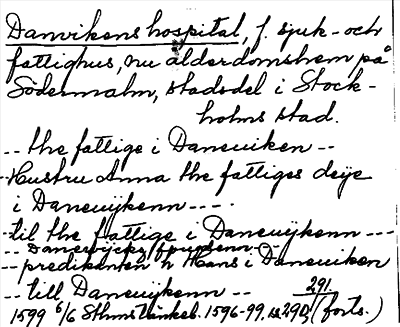 Danvikens hospital, f. sjuk- och
fattighus, nu ålderdomshem på
Södermalm, stadsdel i Stock-
holms stad.
-- the fattige i Daneuiken --
-- Hustru Anna the fattiges deije
i Daneuijkenn ----
-- til the fattige i Daneuijkenn ---
-- predikanten h Hans i Daneuiken
-- till Daneuijkenn -- 291.
1599 6/6 Sthms tänkeb. 1596-99. s. 290, (forts.)